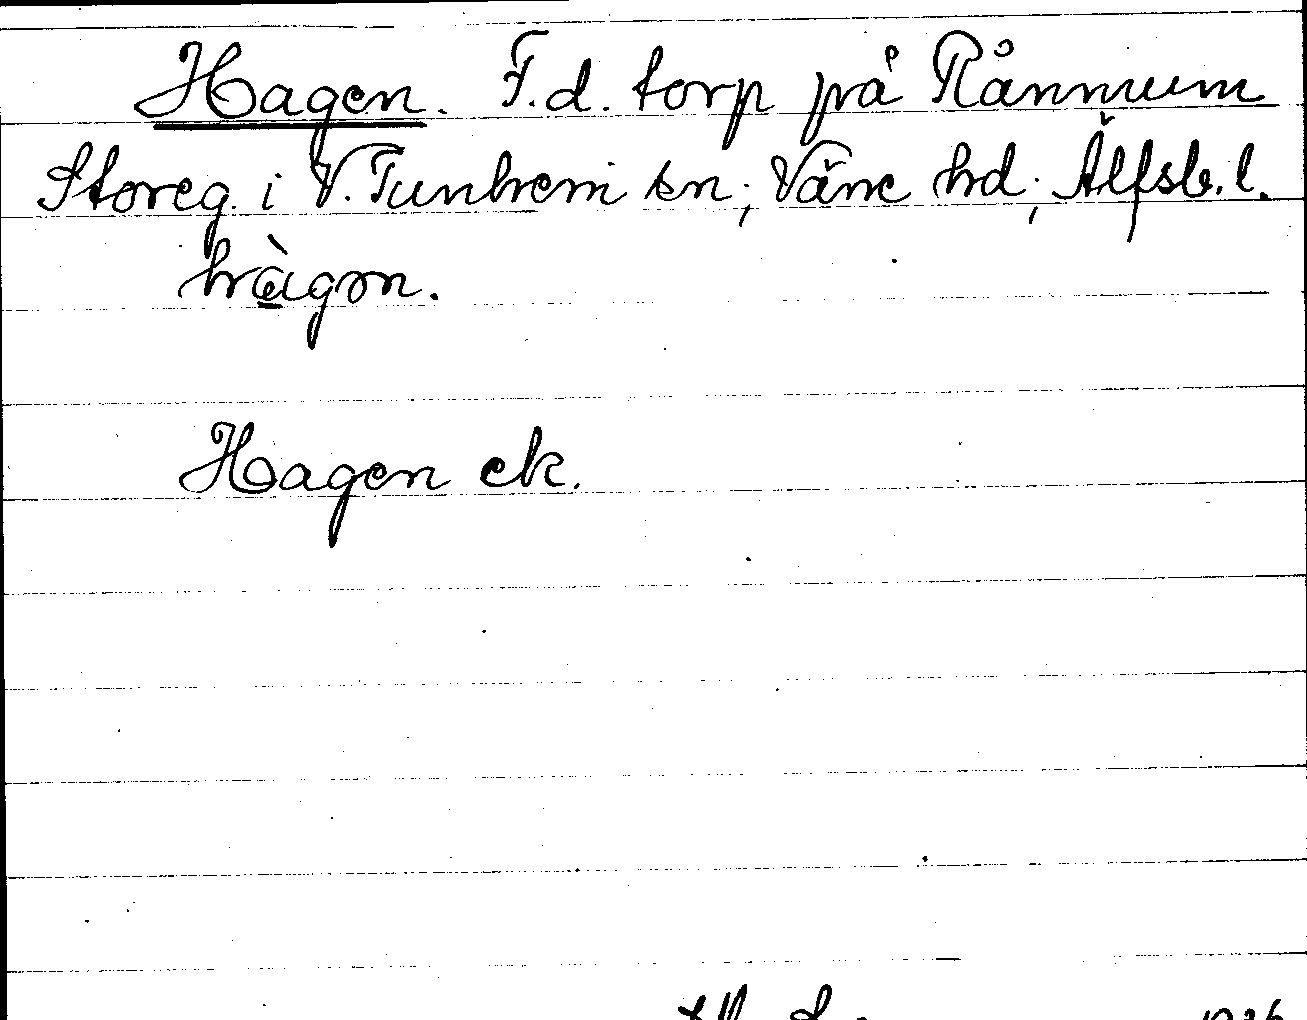 Hagen. F.d. torp på Rånnum
Storeg. i V. Tunhem sn; Väne hd; Älfsb. l.
hàgən.
Hagen ek.
1936